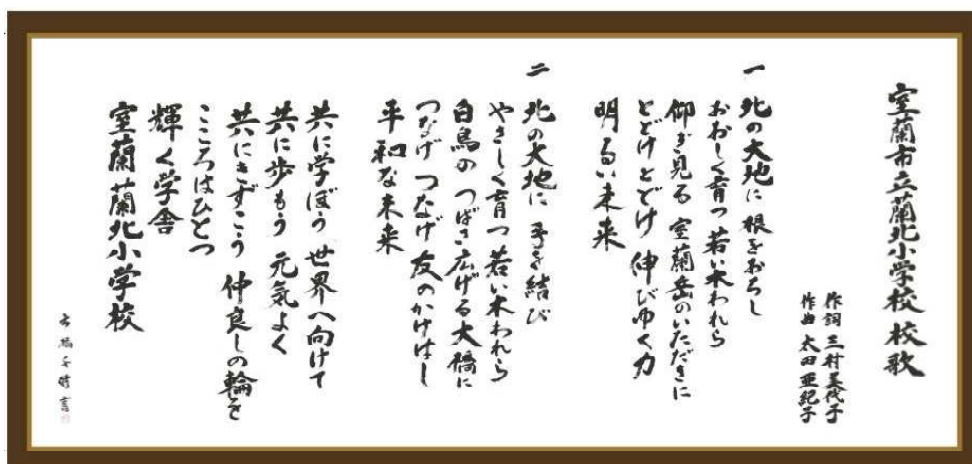 室蘭市立蘭北小学校 校歌
作詞 三村美代子
作曲 太田亜紀子
一 北の大地に 根をおろし
おおしく育つ 若い木われら
仰ぎ見る 室蘭岳のいただきに
とどけ とどけ 伸びゆく力
明るい未来
二 北の大地に 手を結び
やさしく育つ 若い木われら
白鳥の つばさ広げる大橋に
つなげ つなげ 友のかけはし
平和な未来
共に学ぼう 世界へ向けて
共に歩もう 元気よく
共にきずこう 仲良しの輪を
こころはひとつ
輝く学舎
室蘭蘭北小学校